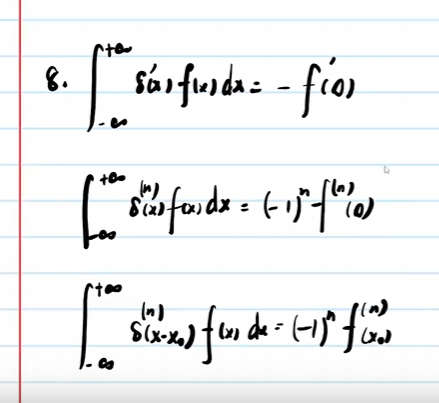 8. ∫_{-∞}^{+∞} δ'(x) f(x) dx = - f'(0)
∫_{-∞}^{+∞} δ^{(n)}(x) f(x) dx = (-1)^n f^{(n)}(0)
∫_{-∞}^{+∞} δ^{(n)}(x-x₀) f(x) dx = (-1)^n f^{(n)}(x₀)